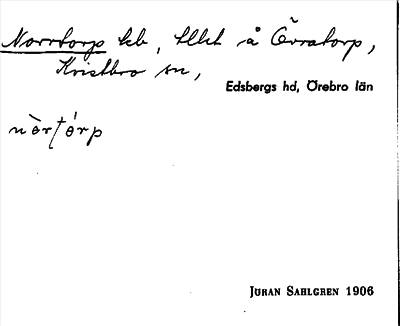 Norrtorp hb, tllht å Övratorp,
Kristbro sn,
Edsbergs hd, Örebro län
nòrtórp
JÖRAN SAHLGREN 1906